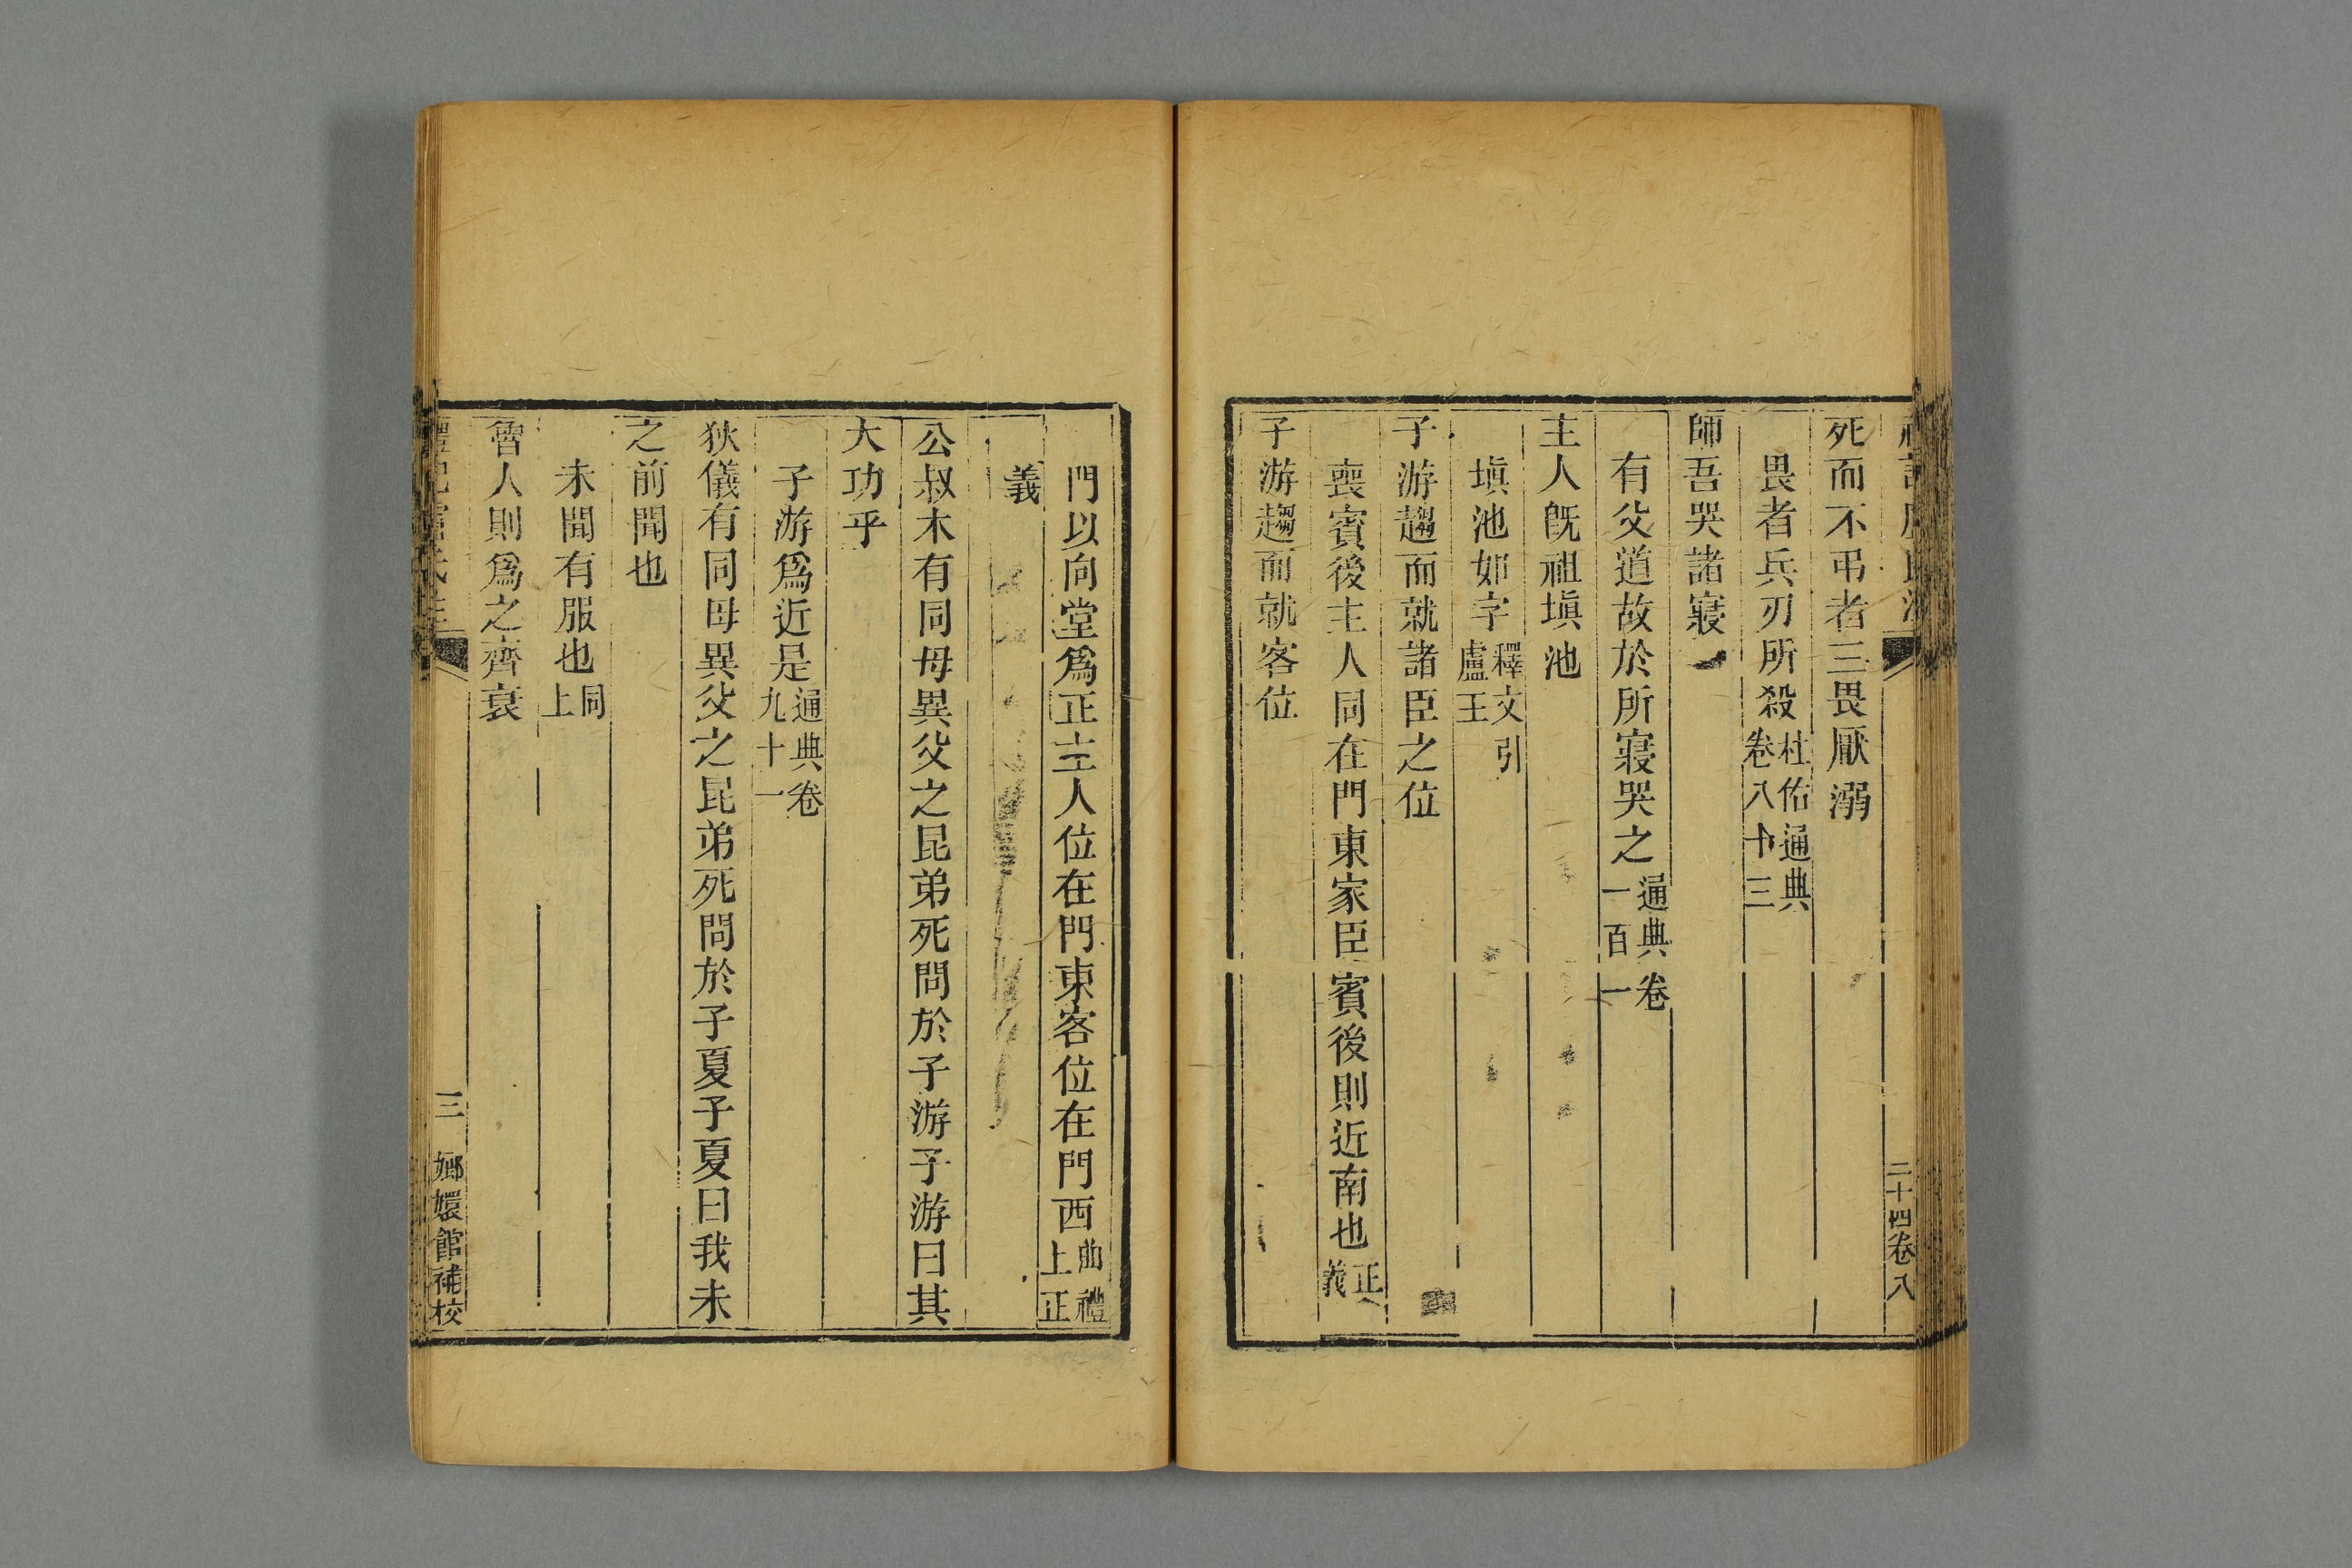 二十四卷八
死而不弔者三畏厭溺
畏者兵刃所殺杜佑通典卷八十三
師吾哭諸寢
有父道故於所寢哭之通典卷一百一
主人旣祖塡池
塡池如字釋文引盧王
子游趨而就諸臣之位
喪賓後主人同在門東家臣賓後則近南也正義
子游趨而就客位
門以向堂爲正主人位在門東客位在門西曲禮上正
義
公叔木有同母異父之昆弟死問於子游子游曰其
大功乎
子游爲近是通典卷九十一
狄儀有同母異父之昆弟死問於子夏子夏曰我未
之前聞也
未聞有服也同上
魯人則爲之齊衰
三 嫏嬛館補校